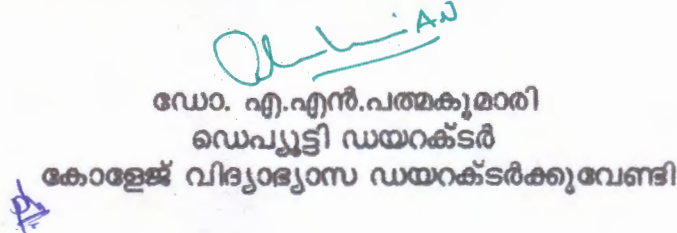 ഡോ. എ.എൻ.പത്മകുമാരി
ഡെപ്യൂട്ടി ഡയറക്ടർ
കോളേജ് വിദ്യാഭ്യാസ ഡയറക്ടർക്കുവേണ്ടി